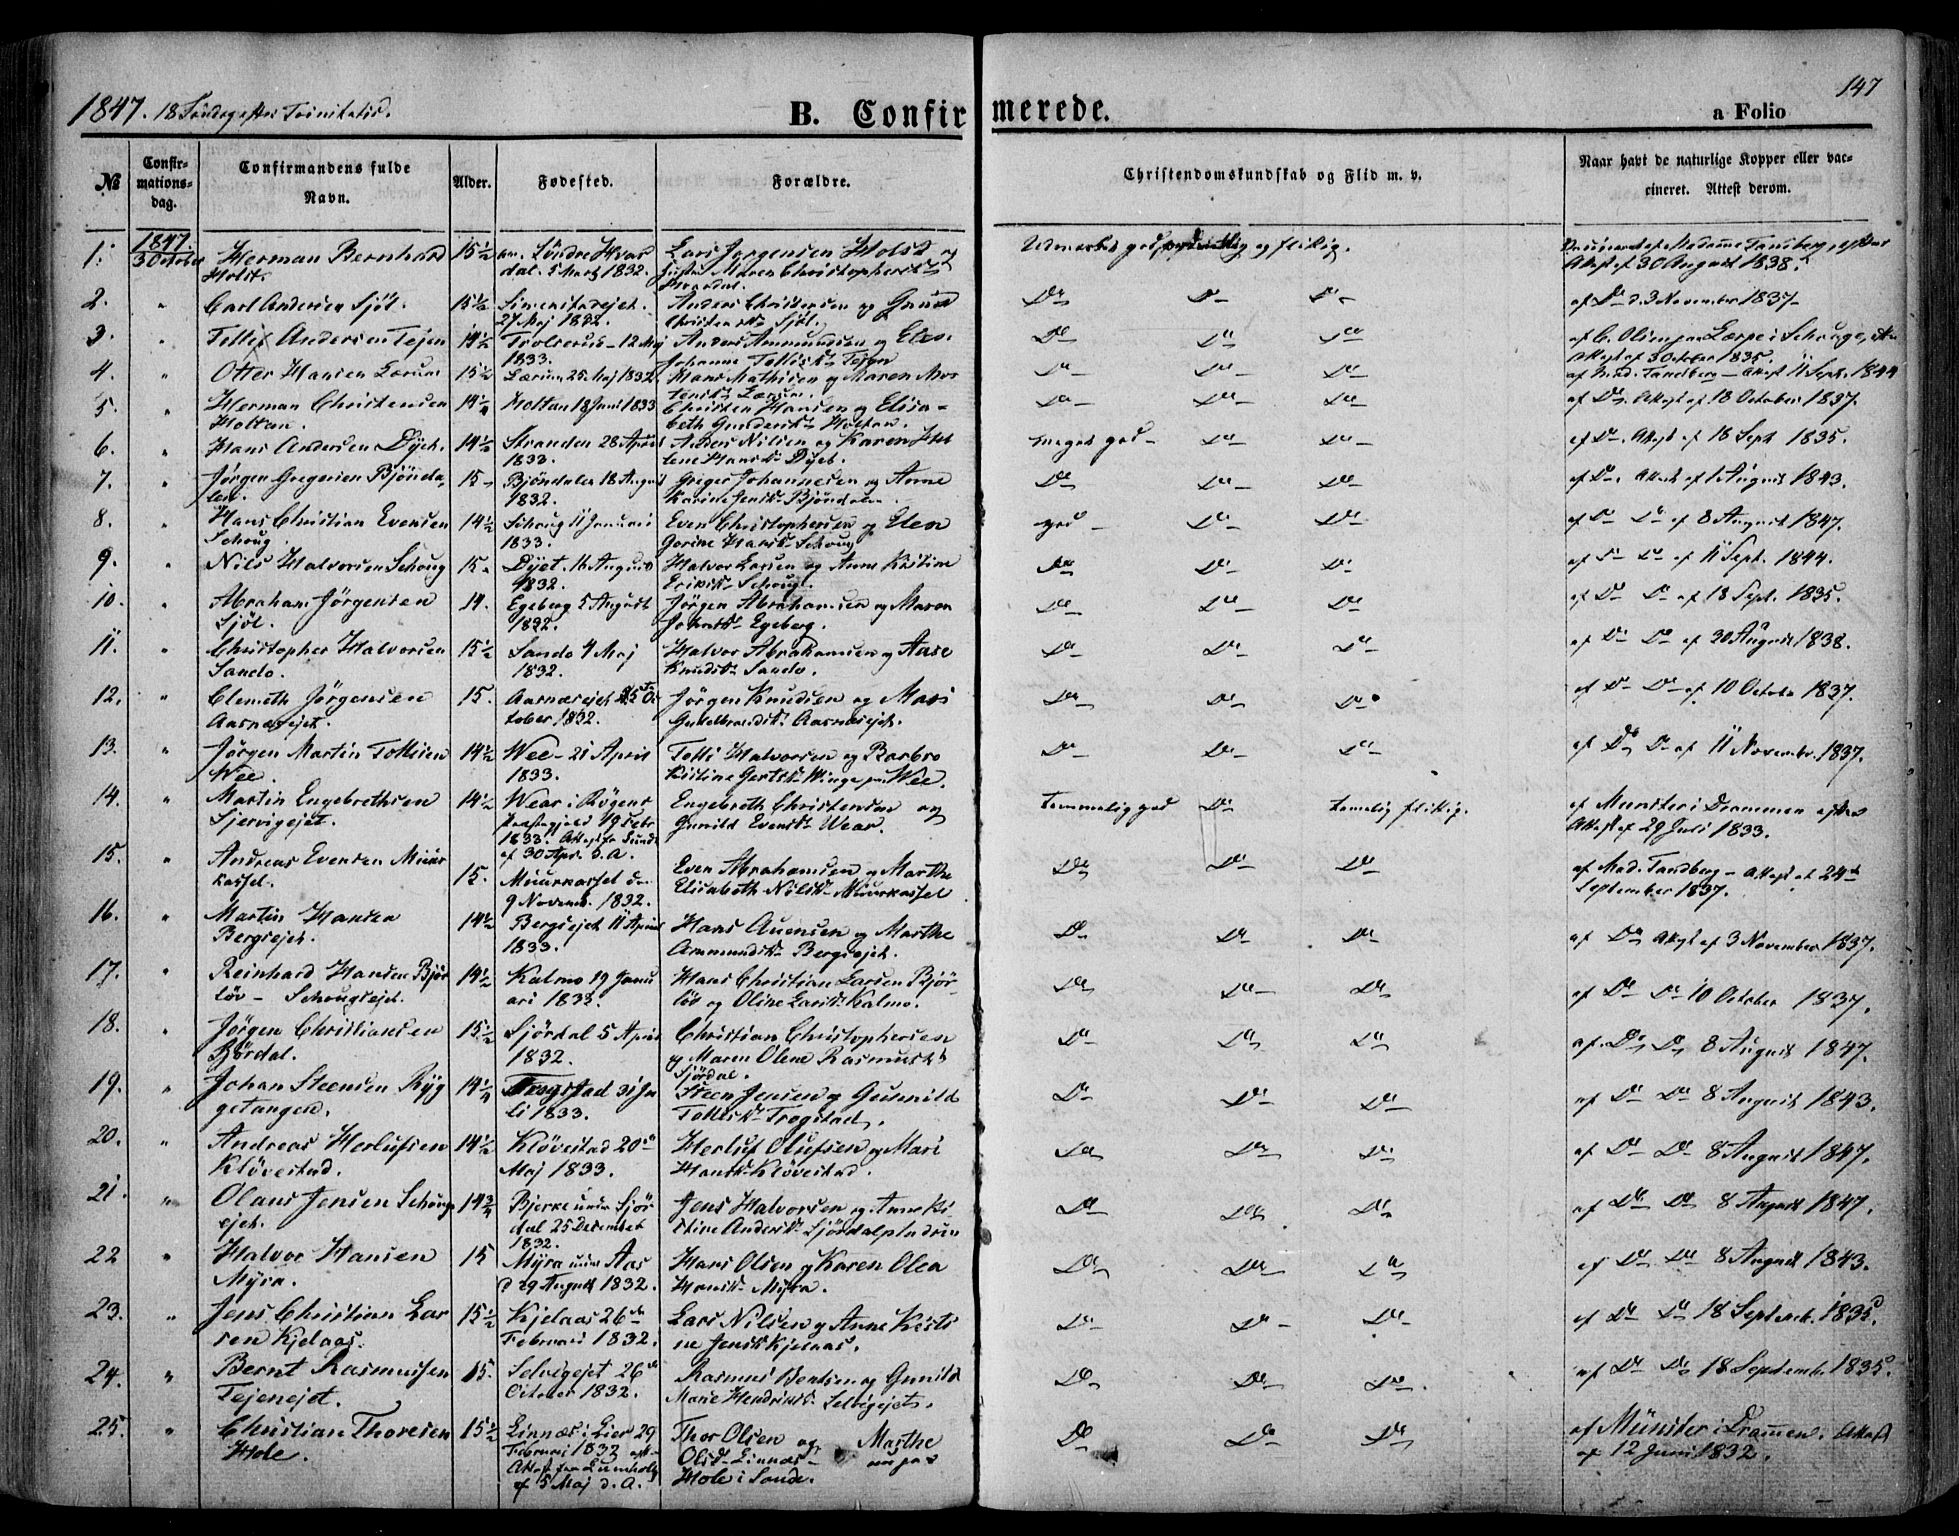 147
1847. 18 Söndag efter Trinitatis.
B. Confirmerede.
a Folio
№
Confir-
mations-
dag.
Confirmandens fulde
Navn.
Alder.
Fødested.
Forældre.
Christendomskundskab og Flid m. v.
Naar havt de naturlige Kopper eller vac-
cineret. Attest derom.
1847.
1. 3 October Herman Bernhard 15½ Söndre Hvar Lars Jørgensen Holst og og flittig. Madame Tandberg, efter
Holst. dal. 5 Marts 1832. Maren Christophersd Attest af 30 August 1838.
2. " Carl Andersen Sjöl. 15½ 27 Maj 1832. Anders Christensen og Gunild Do Do Do af Do d. 3 November 1837
Christensd. Sjöl.
3. " Tollef Andersen Tejen 14½ Trolserud 12 Maj Anders Ammundsen og Elen Do Do Do
1833. Johanne Tollefsd. Tejen Attest af 3 October 1835.
4. " Otter Hansen Lærum 15½ Lærum 25 Maj 1832 Hans Mathisen og Maren Mor Do Do Do af Mad. Tandberg - Attest 11 Sept. 1844
tensd. Lærum
5. " Herman Christensen 14¼ Holtan 18 Juni 1833 Christen Hansen og Elisa- Do Do Do af Do. Attest af 18 October 1837.
Holtan. beth Gundersd. Holtan.
6. " Hans Andersen Dyet. 14½ Stranden 28 April Anders Nilsen og Karen He meget god Do Do af Do. Attest af 18 Sept. 1835.
1833. lene Hansd. Dyet.
7. " Jørgen Gregersen Bjönda- 15 Bjöndalen 18 August Greger Johannesen og Anne Do Do Do af Do. Attest af 1 August 1843.
len. 1832. Karine Jensd. Bjöndalen.
8. " Hans Christian Evensen 14½ Schoug 11 Januari Even Christophersen og Elen god Do Do af Do Do af 8 August 1847.
Schoug 1833. Gorine Hansd. Schoug
9. " Nils Halvorsen Schoug 15. Dyet. 16 August Halvor Larsen og Anne Kistine Do Do Do af Do Do af 11 Sept. 1844.
1832. Eriksd. Schoug.
10. " Abraham Jörgensen 14. Egeberg 5 August Jörgen Abrahamsen og Maren Do Do Do af Do Do af 18 Sept. 1835.
Sjöl. 1832. Johansd. Egeberg.
11. " Christopher Halvorsen 15½ Sando 4 Maj Halvor Abrahamsen og Aase Do Do Do af Do Do af 30 August 1838.
Sando. 1832. Knudsd. Sando.
12. " Clemeth Jörgensen 15. Aarnæsejet 25 Oc Jörgen Knudsen og Mari Do Do Do af Do Do af 10 Octobr 1837.
Aarnæsejet. tober 1832. Gulbrandsd. Aarnæsejet.
13. " Jörgen Martin Tollisen 14½ Wee - 21 April Tolli Halvorsen og Barbro Do Do Do af Do Do af 11 November 1837.
Wee. 1833. Kistine Gertsd. Winge paa Wee.
14. " Martin Engebrethsen 14½ Wear i Rögens Engebreth Christensen og temmelig god Do temmelig flittig. af Munster i Drammen efter
Sjervigejet. Præstegjeld 19 Febr Gunild Evensd. Wear. Attest af 29 Juli 1833.
1833. Attest fra
af 30 Apr. d. A.
15. " Andreas Evensen Muur 15. Muurkassel den Even Abrahamsen og Marthe Do Do Do af Mad. Tandberg - Attest af 24de
kassel. 9 Novemb. 1832. Elisabeth Nilsd. Muurkassel September 1837.
16. " Martin Hansen 14½ Bergsejet 11 April Hans Auensen og Marthe Do Do Do af Do Attest af 3 November 1837.
Bergsejet. 1833. Ammundsd. Bergsejet.
17. " Reinhard Hansen Björ 14½ Kalmo 19 Janu Hans Christian Larsen Björ- Do Do Do af Do Do 10 October 1837.
löv - Schougsejet. ari 1833. löv og Oline Larsd. Kalmo.
18. " Jörgen Christiansen 15½ Sjördal 5 April Christian Christophersen Do Do Do af Do Do 8 August 1847.
1832. og Maren Olene Rasmusd.
Sjördal.
19. " Johan Steensen Ryg 14¼ Trogstad 31 Ju Steen Jensen og Gunnild Do Do Do af Do Do 8 August 1843.
getangen. li 1833. Tollisd. Trogstad.
20. " Andreas Herlufsen 14½ Klövestad 20de Herluf Olufsen og Mari Do Do Do af Do Do 8 August 1847.
Klövestad. Maj 1833. Hansd. Klövestad.
21. " Olaus Jensen Schoug 14¾ Bjerke under Sjör Jens Halvorsen og Anne Ki Do Do Do af Do Do 8 August 1847.
ejet. dal 25 December stine Andersd. Sjördal
1832.
22 " Halvor Hansen 15 Myra under Aas Hans Olsen og Karen Olea Do Do Do af Do Do 8 August 1843.
Myra. d 29 August 1832. Hansd. Myra.
23. " Jens Christian Lar 15½ Kjelaas 26de Lars Nilsen og Anne Kisti Do Do Do af Do Do 18 Septemb. 1835
sen Kjelaas. Februari 1832. ne Jensd. Kjelaas.
24. " Bernt Rasmussen 15. Selvigejet 26de Rasmus Bentsen og Gunild Do Do Do af Do Do 18 September 1835
Tejenejet. October 1832. Marie Hendriksd. Selvigejet.
25. " Christian Thoresen 15½ Linnæs i Lier 29 Thor Olsen og Marthe Do Do Do af Münster i Drammen. Attest
Hole. Februari 1832 Olsd. Linnæs - af 12 Juni 1832.
Attest fra Lumholtz Hole i Sande.
af 5 Maj d. A.